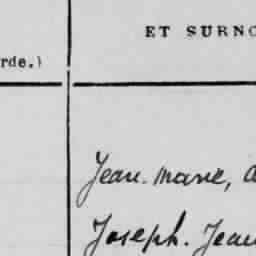 ET SURNO
rde.)
Jean. Marie, A
Joseph. Jean